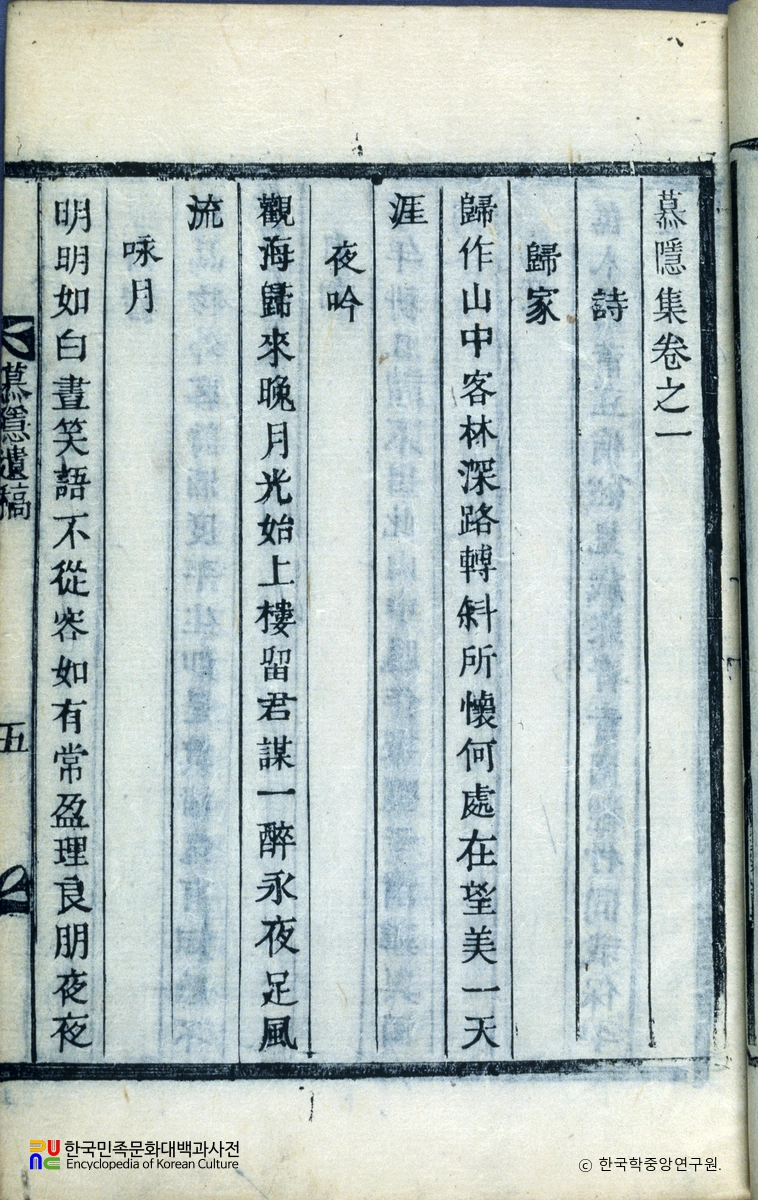 慕隱集卷之一
詩
歸家
歸作山中客林深路轉斜所懷何處在望美一天
涯
夜吟
觀海歸來晚月光始上樓留君謀一醉永夜足風
流
咏月
明明如白晝笑語不從容如有常盈理良朋夜夜
慕隱遺稿
五
한국민족문화대백과사전
Encyclopedia of Korean Culture
ⓒ 한국학중앙연구원.